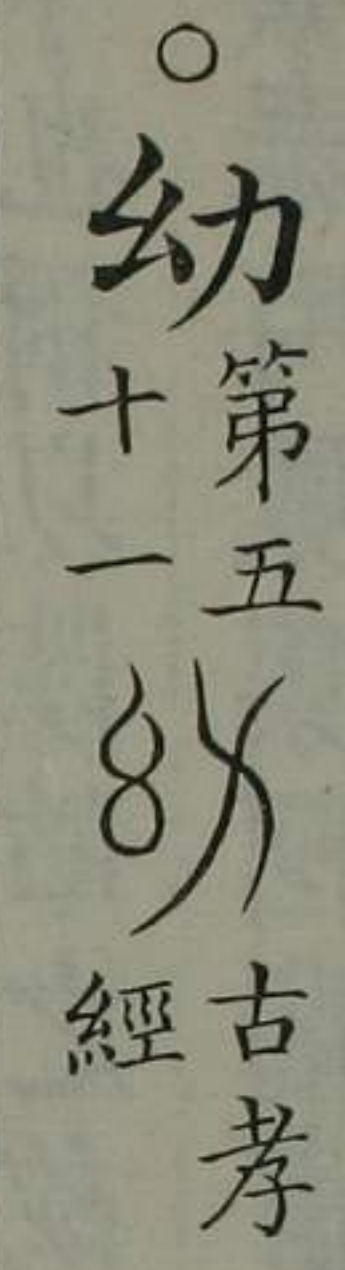 ○幼
第五
十一
幼
古孝
經